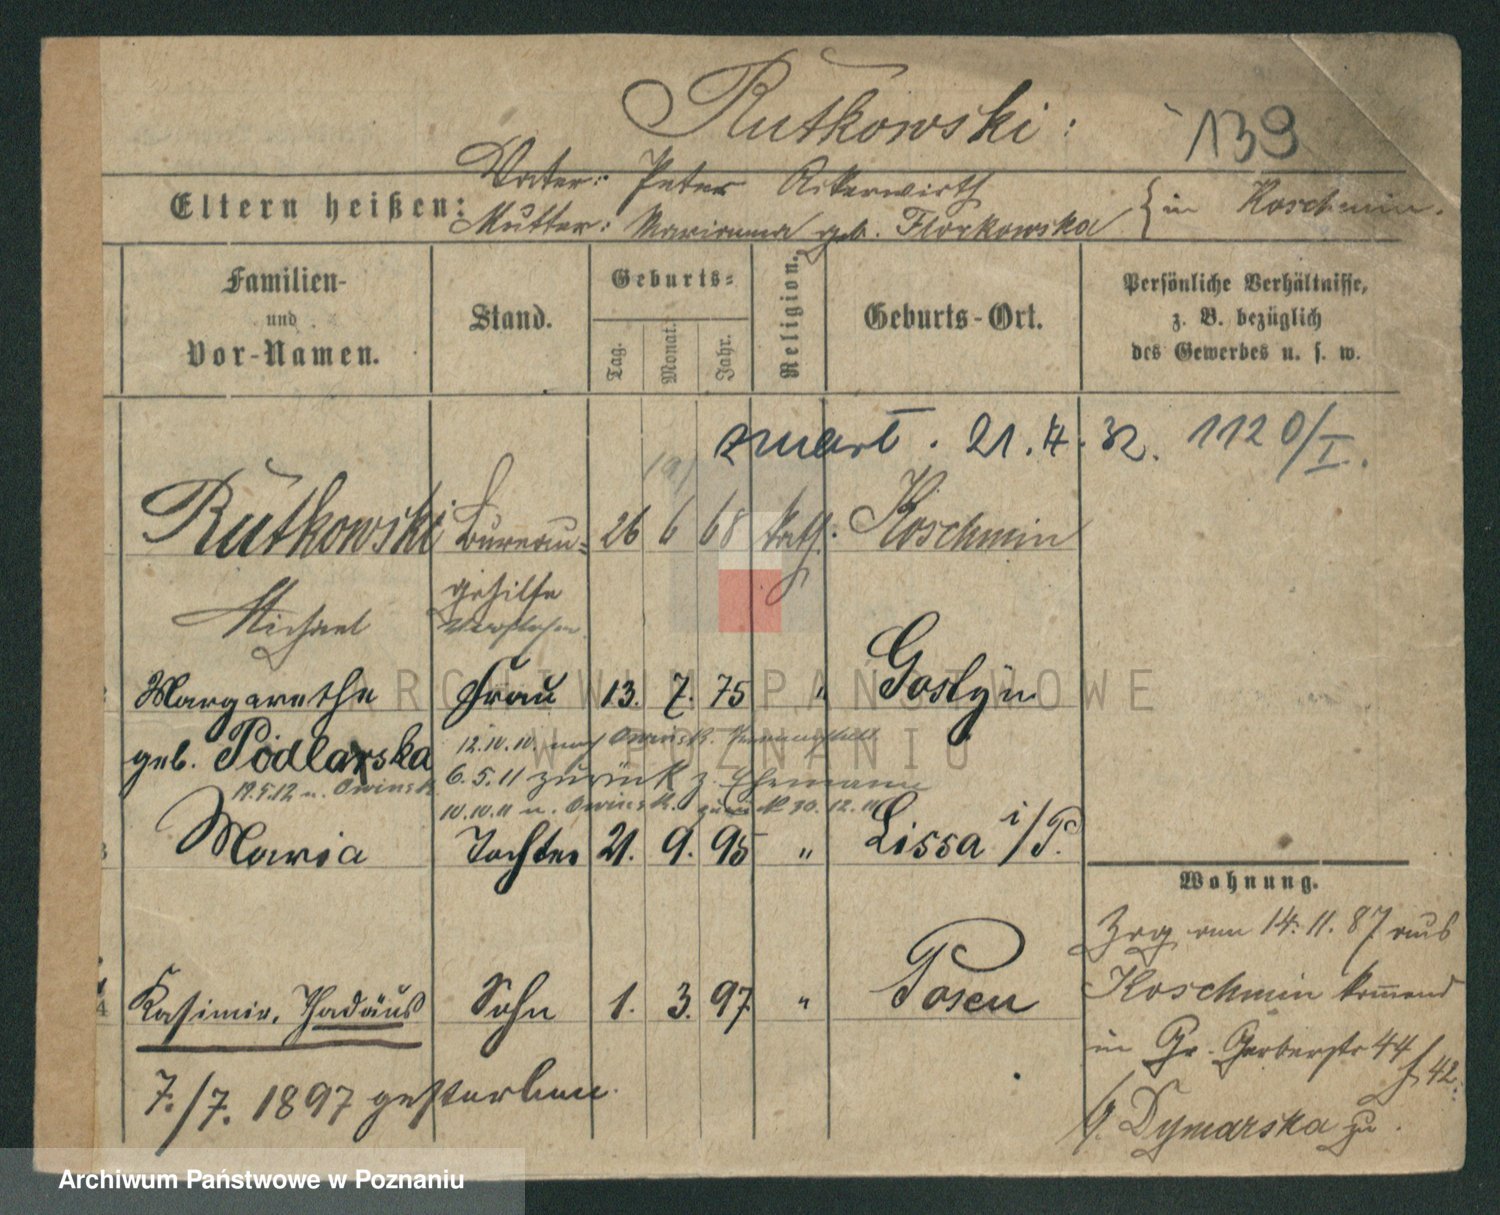 Rutkowski:
139
Eltern heißen:
Vater: Peter Ackerwirth
Mutter: Marianna geb. Florkowska } in Koschmin.
Familien-
und
Vor-Namen.
Stand.
Geburts-
Tag.
Monat.
Jahr.
Religion.
Geburts-Ort.
Persönliche Verhältnisse,
z. B. bezüglich
des Gewerbes u. s. w.
zmarł. 21.4.32. 1120/I.
Rutkowski Bureau- 26 6 68 kath. Koschmin
Michael gehilfe
Margarethe Frau 13. 7. 75 " Gostyn
geb. Podlarska
12.10.10. nach Owinsk.
6.5.11 zurück z. Ehemann
19.5.12 n. Owinsk.
10.10.11 n. Owinsk. zurück 30.12.11
3 Maria Tochter 21. 9. 95 " Lissa i/P.
Wohnung.
Zzg am 14.11.87 aus
Koschmin kommend
in Gr. Gerberstr 44
42.
b. Dymarska zu.
4 Kasimir, Thadäus Sohn 1. 3. 97 " Posen
7./7. 1897 gestorben.
ARCHIWUM PAŃSTWOWE
W POZNANIU
Archiwum Państwowe w Poznaniu